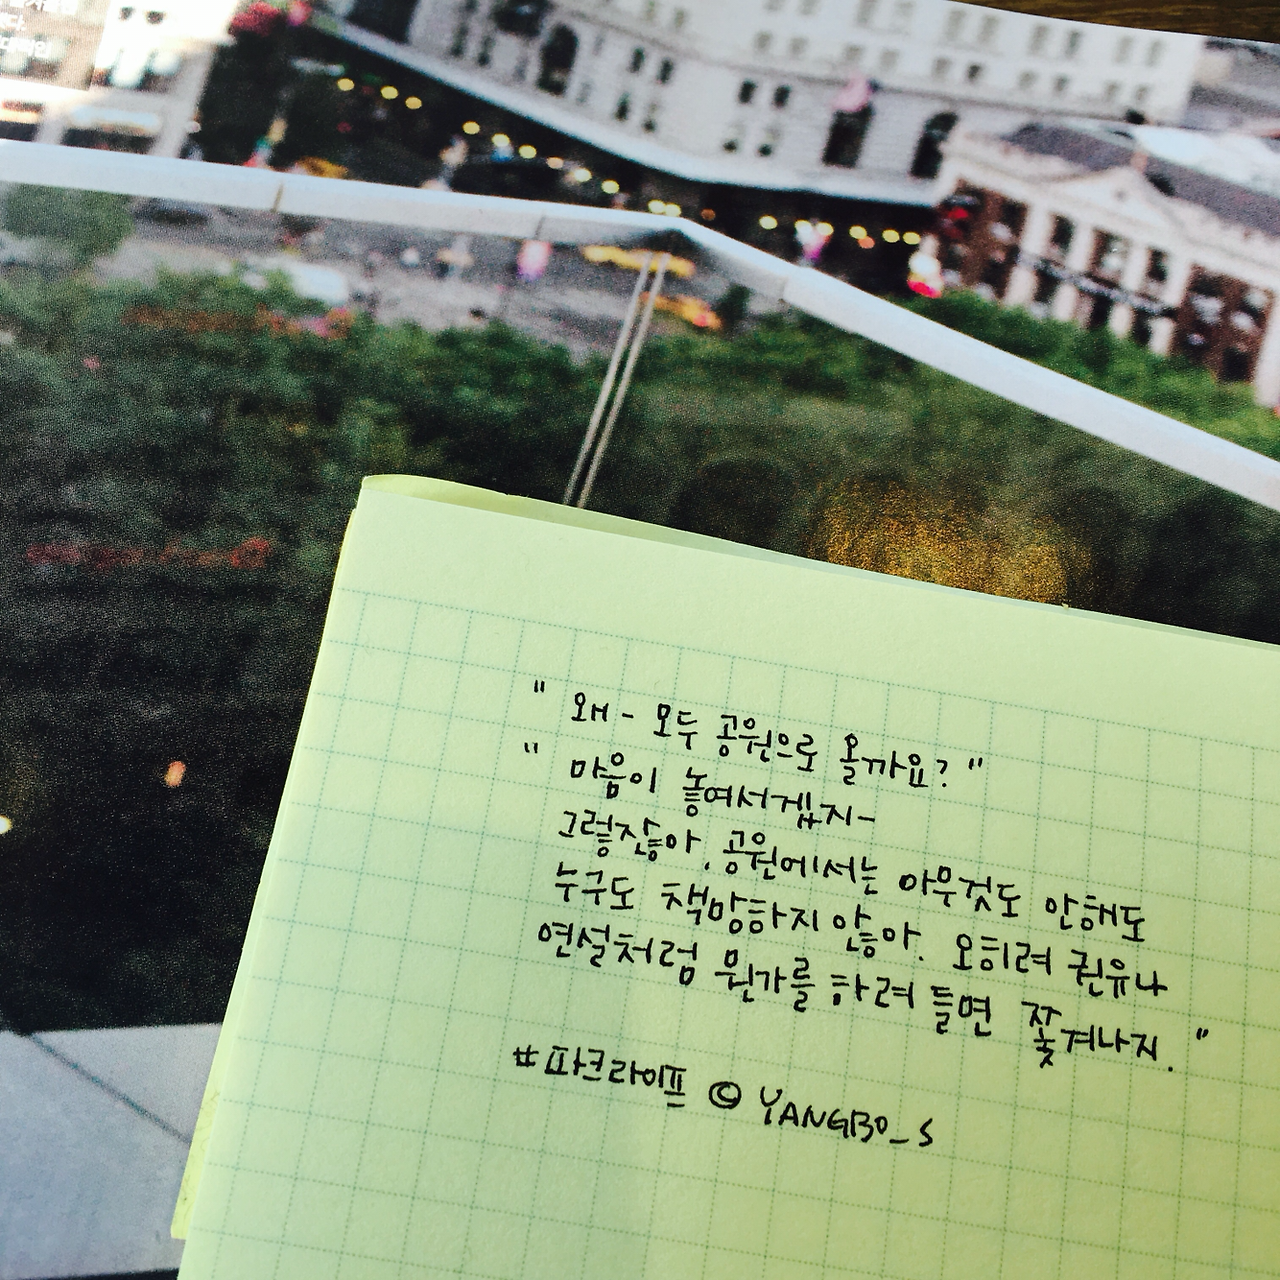 대매인
" 왜 - 모두 공원으로 올까요? "
" 마음이 놓여서겠지-
그렇잖아. 공원에서는 아무것도 안해도
누구도 책망하지 않아. 오히려 권유나
연설처럼 뭔가를 하려 들면 쫓겨나지. "
#파크라이프 © YANGBO_S